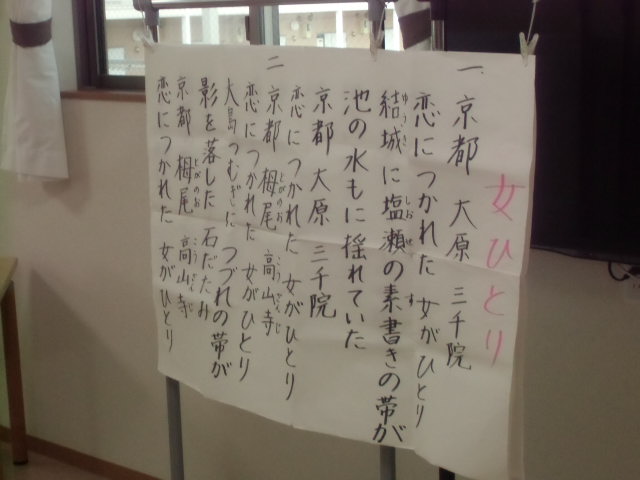 女ひとり
一、京都 大原 三千院
恋につかれた 女がひとり
結城に塩瀬の素書きの帯が
池の水もに揺れていた
京都 大原 三千院
恋につかれた 女がひとり
二 京都 栂尾 高山寺
恋につかれた 女がひとり
大島つむぎに つづれの帯が
影を落した 石だたみ
京都 栂尾 高山寺
恋につかれた 女がひとり